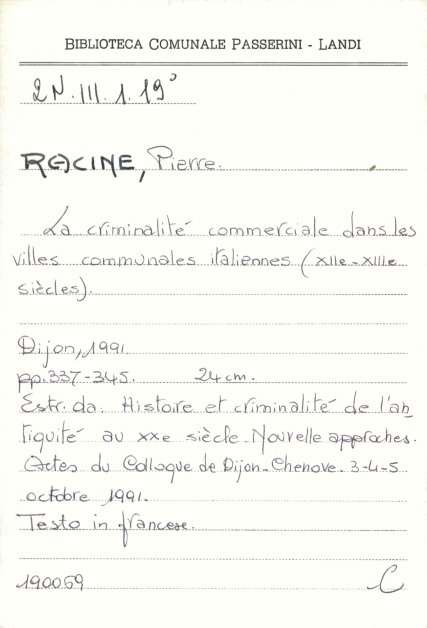 BIBLIOTECA COMUNALE PASSERINI - LANDI
2N.III.1.19°
RACINE, Pierre.
La criminalité commerciale dans les
villes communales italiennes (XIIe-XIIIe
siècles).
Dijon, 1991
pp. 337-345. 24 cm.
Estr. da: Histoire et criminalité de l'an
tiquité au XXe siècle. Nouvelle approches.
Actes du Colloque de Dijon-Chenove. 3-4-5
octobre 1991.
Testo in francese.
190069 C